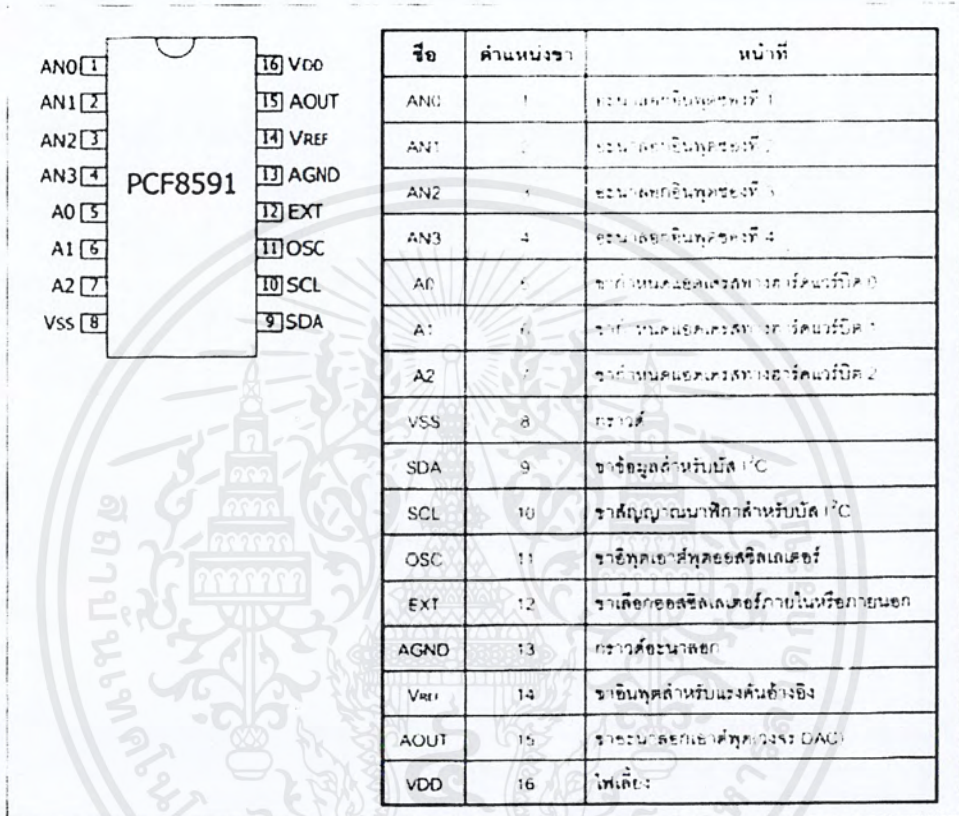 AN0 1
AN1 2
AN2 3
AN3 4
A0 5
A1 6
A2 7
VSS 8
PCF8591
16 VDD
15 AOUT
14 VREF
13 AGND
12 EXT
11 OSC
10 SCL
9 SDA
ชื่อ ตำแหน่งขา หน้าที่
AN0 1 อะนาลอกอินพุตช่องที่ 1
AN1 2 อะนาลอกอินพุตช่องที่ 2
AN2 3 อะนาลอกอินพุตช่องที่ 3
AN3 4 อะนาลอกอินพุตช่องที่ 4
A0 5 ขากำหนดแอดเดรสทางฮาร์ดแวร์บิต 0
A1 6 ขากำหนดแอดเดรสทางฮาร์ดแวร์บิต 1
A2 7 ขากำหนดแอดเดรสทางฮาร์ดแวร์บิต 2
VSS 8 กราวด์
SDA 9 ขาข้อมูลสำหรับบัส I²C
SCL 10 ขาสัญญาณนาฬิกาสำหรับบัส I²C
OSC 11 ขาอิพุตเอาต์พุตออสซิลเลเตอร์
EXT 12 ขาเลือกออสซิลเลเตอร์ภายในหรือภายนอก
AGND 13 กราวด์อะนาลอก
VREF 14 ขาอินพุตสำหรับแรงดันอ้างอิง
AOUT 15 ขาอะนาลอกเอาต์พุต(วงจร DAC)
VDD 16 ไฟเลี้ยง